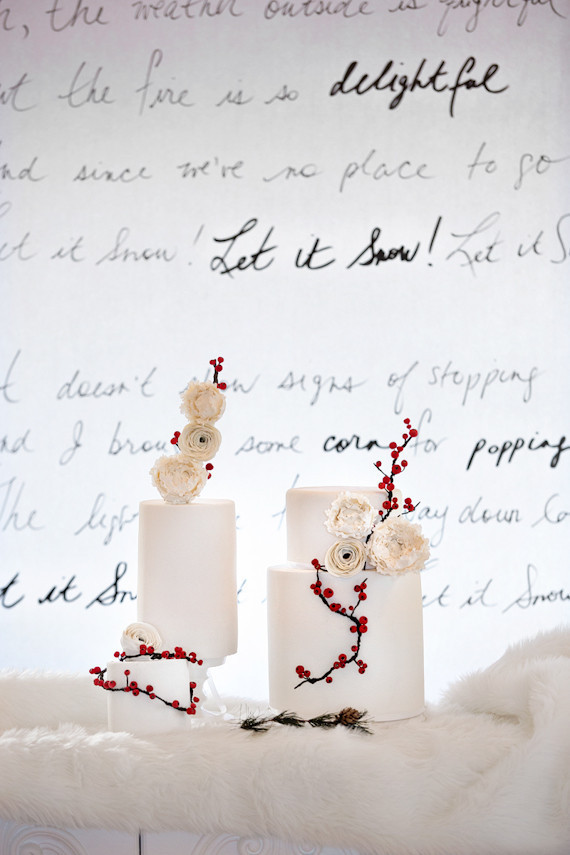 , the weather outside is frightful
the fire is so delightful
nd since we've no place to go
et it Snow! Let it Snow! Let it S
doesn't show signs of stopping
nd I brou some corn for popping
The lig way down lo
t it Snow, et it Snow